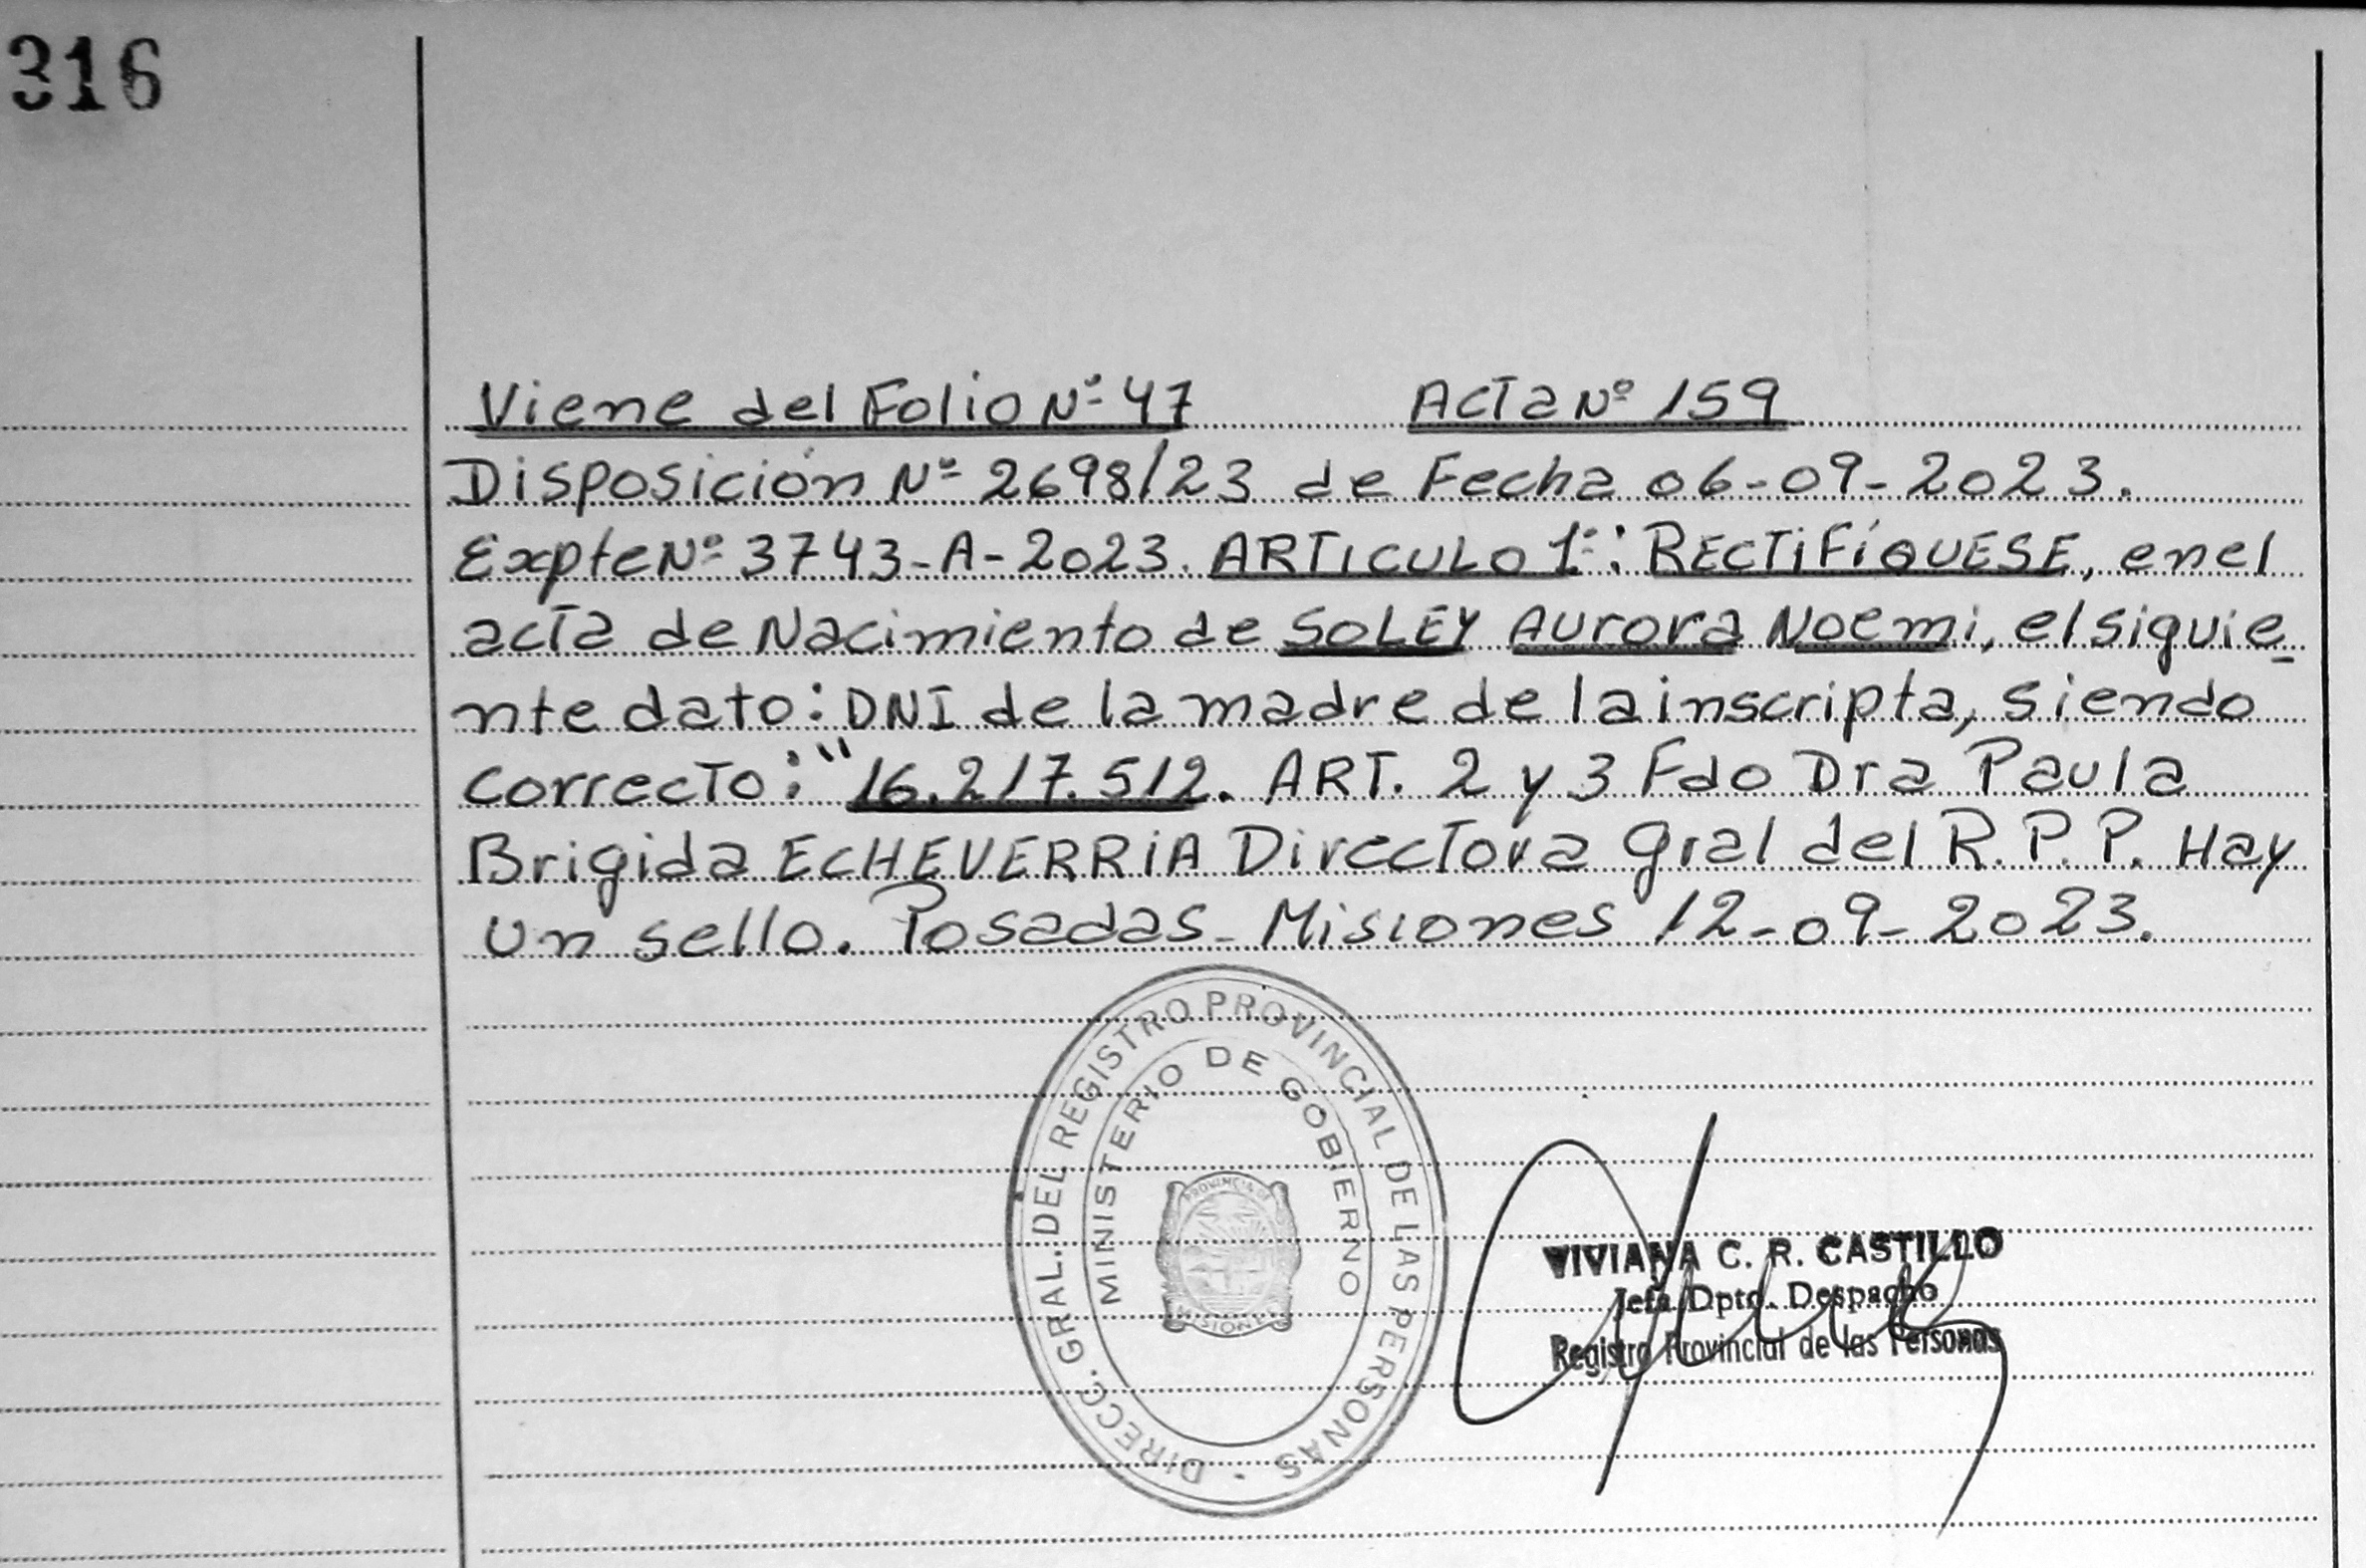 316
Viene del Folio Nº 47 Acta Nº 159
Disposición Nº 2698/23 de Fecha 06-09-2023.
Expte Nº 3743-A-2023. ARTICULO 1º: RECTIFÍQUESE, en el
acta de Nacimiento de SOLEY Aurora Noemi, el siguie-
nte dato: DNI de la madre de la inscripta, siendo
correcto: "16.217.512. ART. 2 y 3 Fdo Dra Paula
Brigida ECHEVERRIA Directora Gral del R.P.P. Hay
un sello. Posadas-Misiones 12-09-2023.
DIRECC. GRAL. DEL REGISTRO PROVINCIAL DE LAS PERSONAS
MINISTERIO DE GOBIERNO
PROVINCIA DE
MISIONES
VIVIANA C. R. CASTILLO
Jefa Dpto. Despacho
Registro Provincial de las Personas